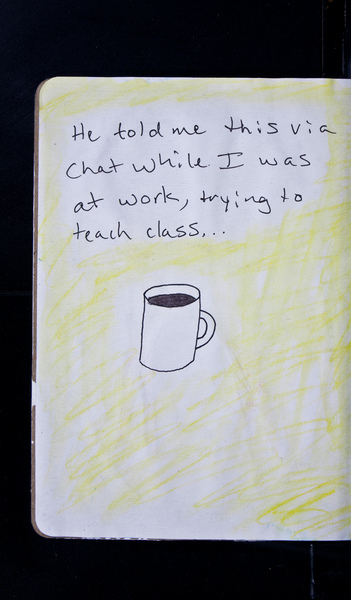 He told me this via
Chat while I was
at work, trying to
teach class...